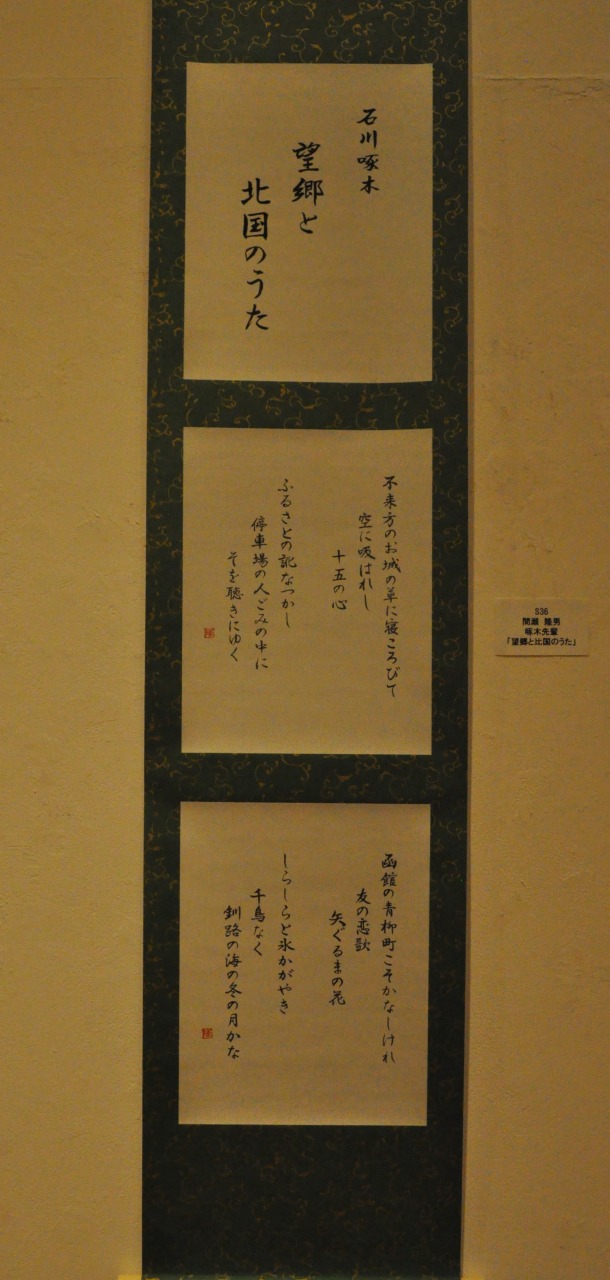 石川啄木
望郷と
北国のうた
不来方のお城の草に寝ころびて
空に吸はれし
十五の心
ふるさとの訛なつかし
停車場の人ごみの中に
そを聴きにゆく
函館の青柳町こそかなしけれ
友の恋歌
矢ぐるまの花
しらしらと氷かがやき
千鳥なく
釧路の海の冬の月かな
S36
間瀬 隆男
啄木先輩
「望郷と比国のうた」